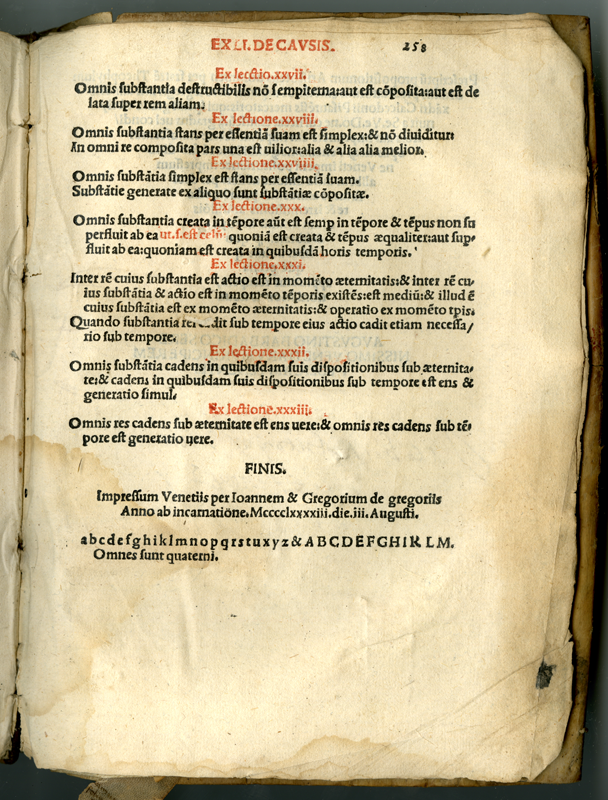 EX LI. DE CAVSIS.
258
Ex lectio.xxvii.
Omnis substantia destructibilis nō sempiterna:aut est cōposita:aut est de
lata super rem aliam.
Ex lectione.xxviii.
Omnis substantia stans per essentiā suam est simplex:& nō diuiditur:
In omni re composita pars una est uilior:alia & alia alia melior.
Ex lectione.xxviiii.
Omnis substātia simplex est stans per essentiam suam.
Substātie generate ex aliquo sunt substātiæ cōpositæ.
Ex lectione.xxx.
Omnis substantia creata in tēpore aūt est semp in tēpore & tēpus non su
perfluit ab ea ut.s.est quoniā est creata & tēpus æqualiter:aut sup
fluit ab ea:quoniam est creata in quibusdā horis temporis.
Ex lectione.xxxi.
Inter rē cuius substantia est actio est in momēto æternitatis:& inter rē cu
ius substātia & actio est in momēto tēporis existēs:est mediū:& illud ē
cuius substātia est ex momēto æternitatis:& operatio ex momēto tpis.
Quando substantia sub tempore eius actio cadit etiam necessa/
rio sub tempore.
Ex lectione.xxxii.
Omnis substātia cadens in quibusdam suis dispositionibus sub æternita-
te:& cadens in quibusdam suis dispositionibus sub tempore est ens &
generatio simul.
Ex lectione.xxxiii.
Omnis res cadens sub æternitate est ens uere:& omnis res cadens sub tē-
pore est generatio uere.
FINIS.
Impressum Venetiis per Ioannem & Gregorium de gregoriis
Anno ab incarnatione.Mcccclxxxxiii.die.iii. Augusti.
a b c d e f g h i k l m n o p q r s t u x y z & A B C D E F G H I K L M.
Omnes sunt quaterni.